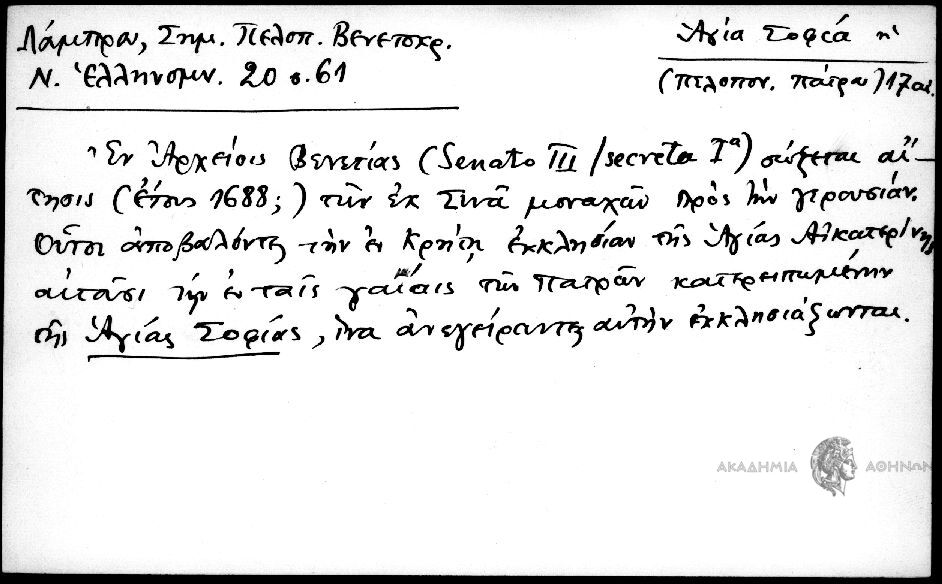 Λάμπρου, Σημ. Πελοπ. Βενετοκρ.
Ν. Ἑλληνομν. 20 σ. 61
Ἁγία Σοφία ἡ
(Πελοπον. Πάτραι) 17 αι.
Ἐν Ἀρχείοις Βενετίας (Senato III / secreta Iª) σώζεται αἴ-
τησις (ἔτους 1688;) τῶν ἐκ Σινᾶ μοναχῶν πρὸς τὴν γερουσίαν.
Οὗτοι ἀποβαλόντες τὴν ἐν Κρήτῃ ἐκκλησίαν τῆς Ἁγίας Αἰκατερίνης
αἰτοῦσι τὴν ἐν ταῖς γαίαις τῶν Πατρῶν κατερειπωμένην
τῆς Ἁγίας Σοφίας, ἵνα ἀνεγείραντες αὐτὴν ἐκκλησιάζωνται.
ΑΚΑΔΗΜΙΑ ΑΘΗΝΩΝ